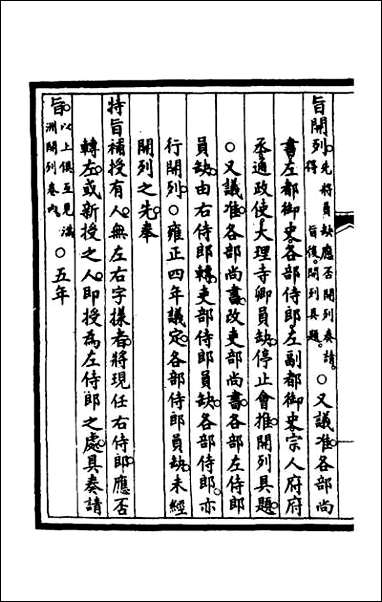 旨開列先將員缺應否開列奏請
得
旨後開列具題○又議准各部尚
書左都御史各部侍郎左副都御史宗人府府
丞通政使大理寺卿員缺停止會推開列具題
○又議准各部尚書改吏部尚書各部左侍郎
員缺由右侍郎轉吏部侍郎員缺各部侍郎亦
行開列○雍正四年議定各部侍郎員缺未經
開列之先奉
特旨補授有人無左右字樣者將現任右侍郎應否
轉左或新授之人即授為左侍郎之處具奏請
旨以上俱互見滿
洲開列卷內○五年